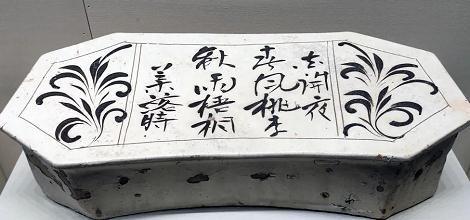 花開夜
春風桃李
秋雨梧桐
葉落時